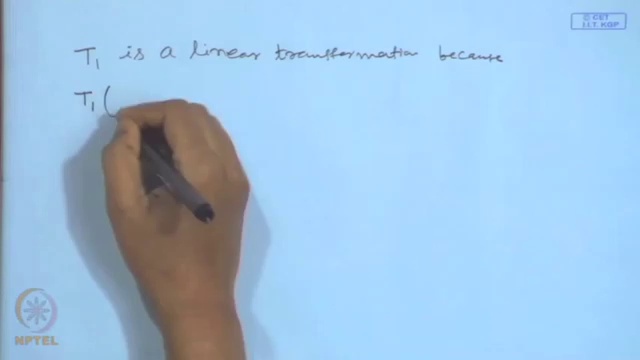 © CET
I.I.T. KGP
T₁ is a linear transformation because
T₁ (
NPTEL